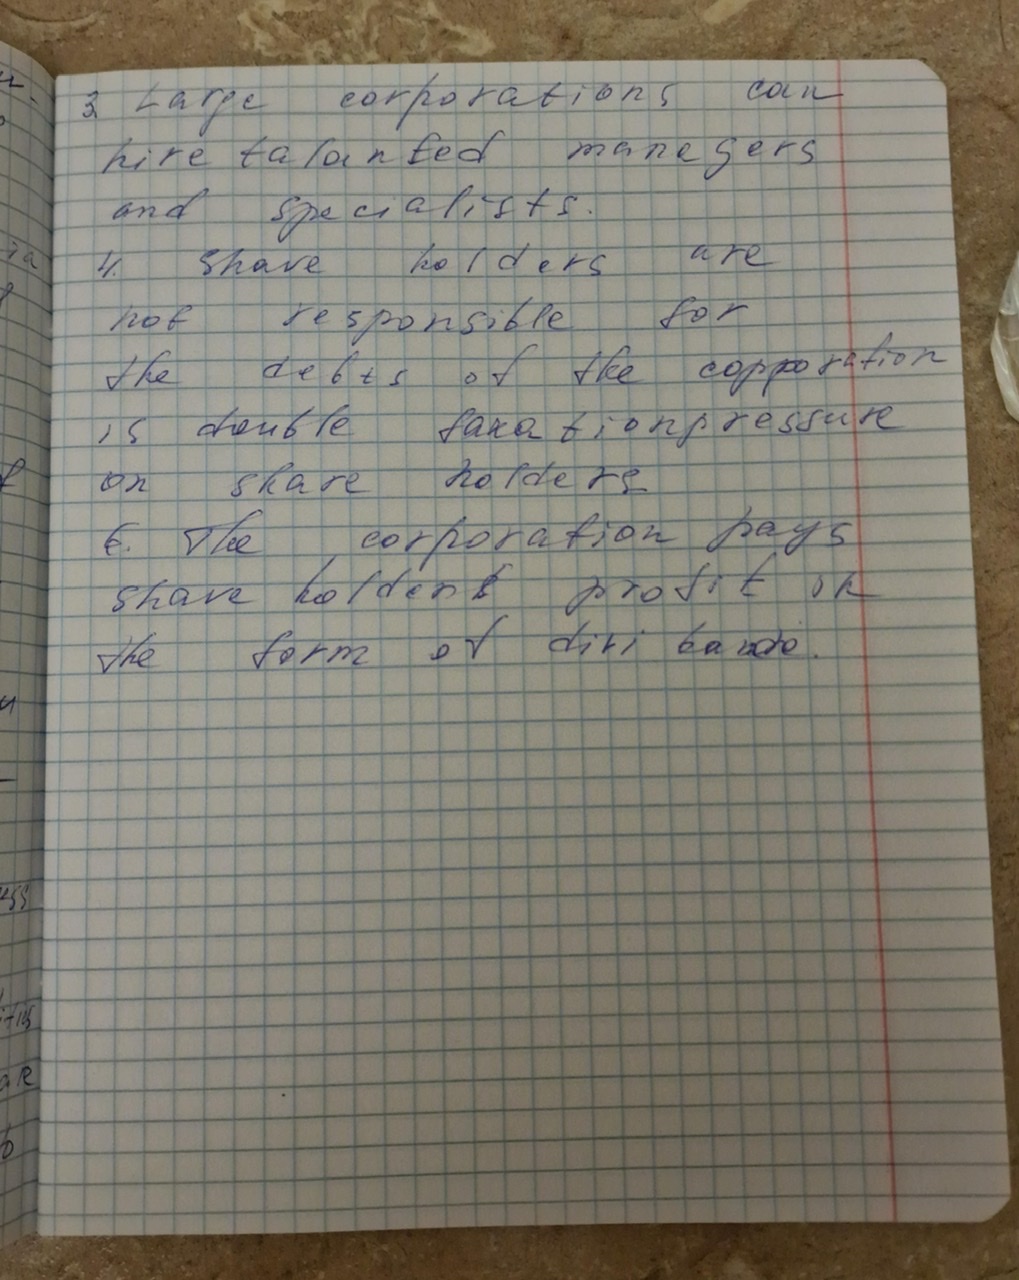 3 Large corporations can
hire talanted managers
and specialists.
4. Share holders are
not responsible for
the debts of the copporation
is double taxationpressure
on share holders
6. The corporation pays
share holders profit in
the form of